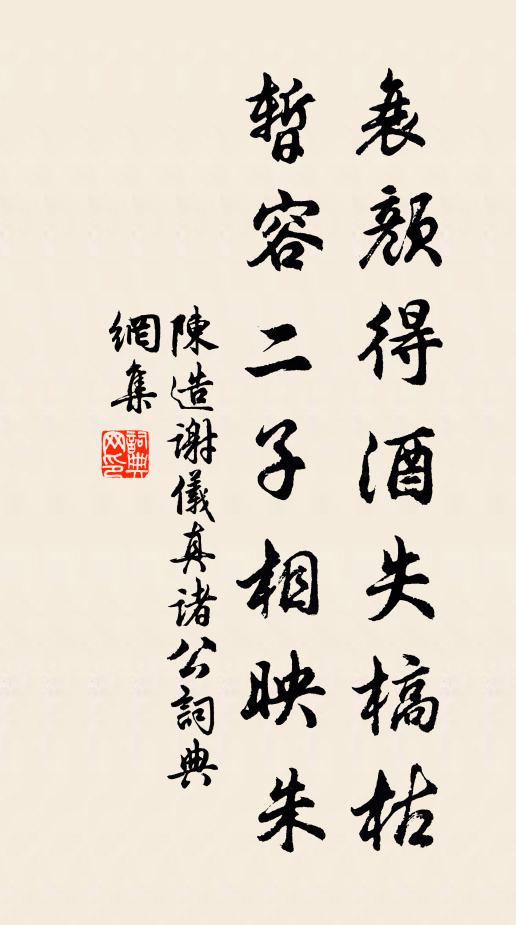 衰顏得酒失槁枯
暫容二子相映朱
陳造謝儀真諸公詞典
網集
詞典網印